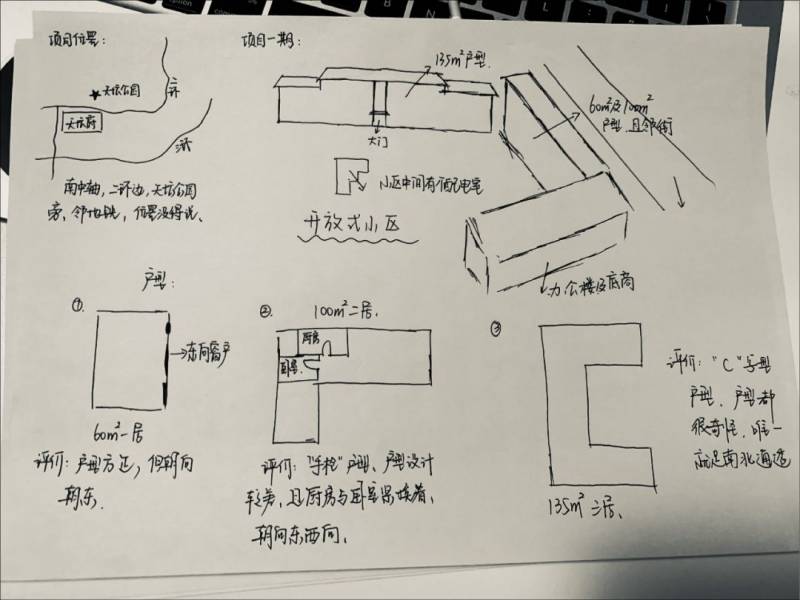 项目位置:
二环
天坛公园
天坛府
三环
南中轴,二环边,天坛公园
旁,邻地铁,位置没得说、
项目一期:
135m²户型.
大门
小区中间有个配电室
开放式小区
60m²及100m²
户型,且邻街
办公楼及底商
户型:
①.
东向窗户
60m²一居
评价:户型方正,但朝向
朝东.
②.
100m²二居.
厨房
卧室.
评价:"手枪"户型、户型设计
较差、且厨房与卧室紧挨着、
朝向东西向、
③
135m²三居、
评价:"C"字型
户型、户型都
很奇怪、唯一
就是南北通透